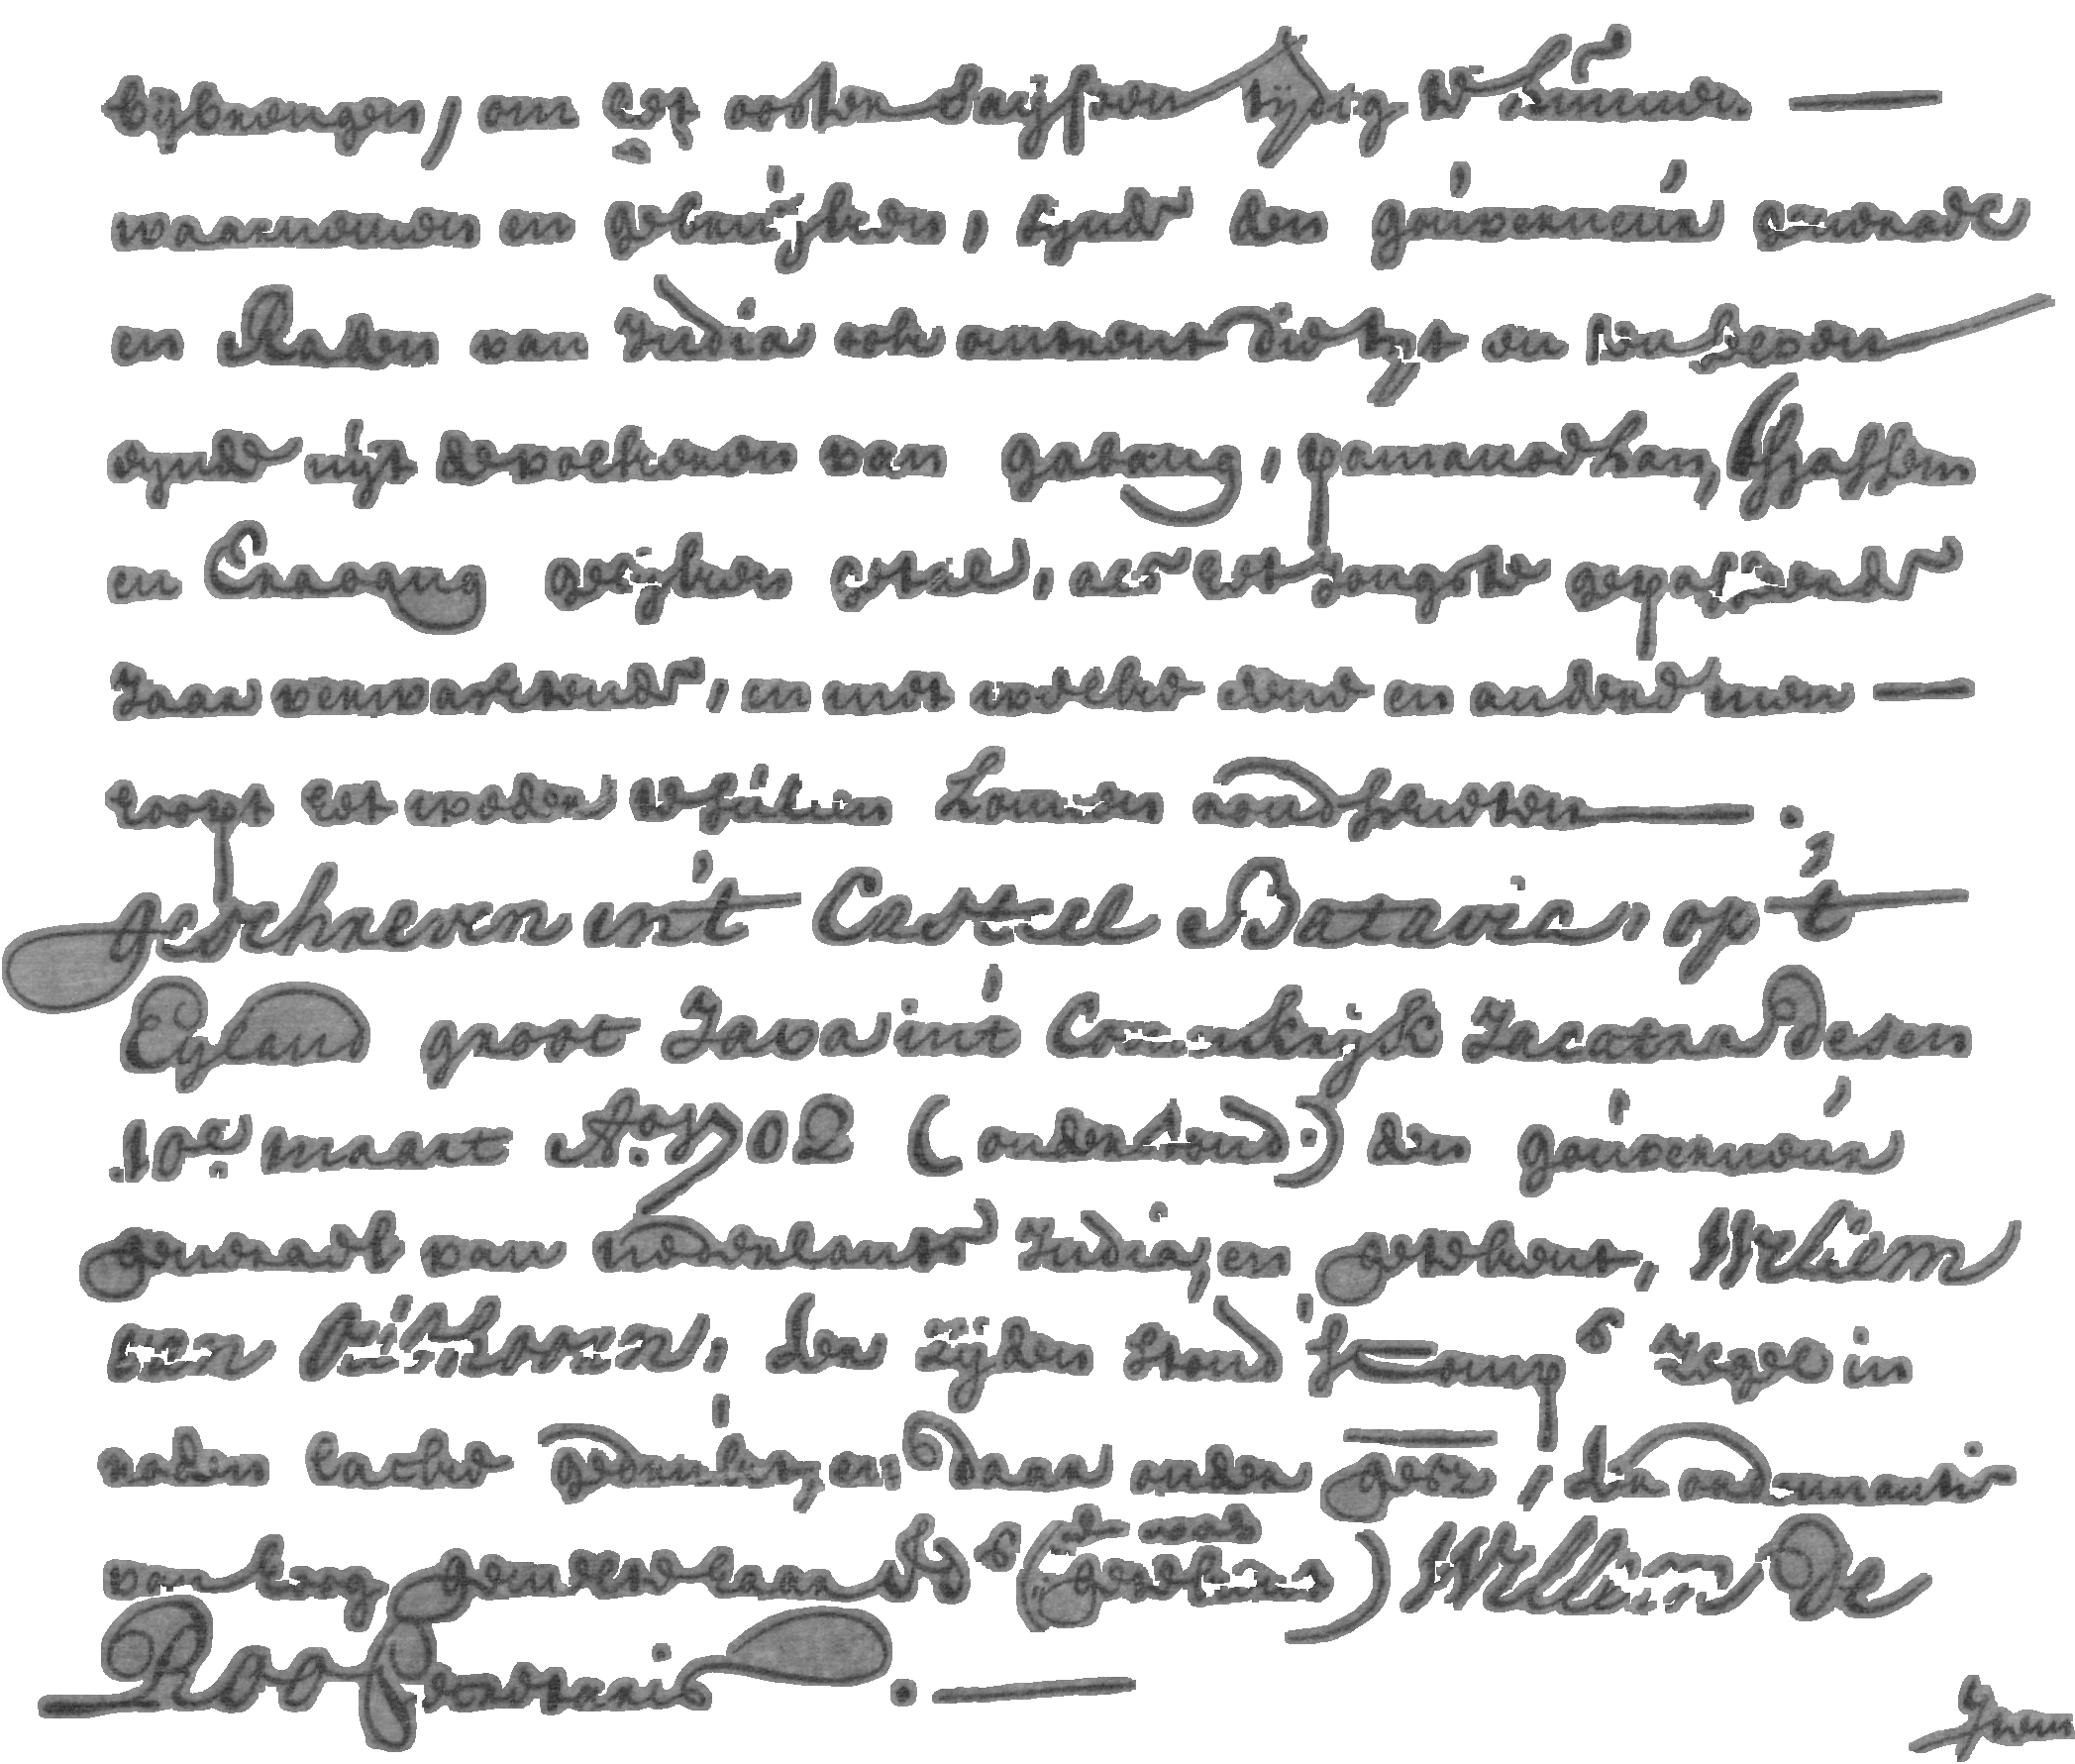 bijbrengen, om het ooster saijsoen tijdig te kunnen —
waarnemen en gebruijken, zijnde den gouverneur generael
en Raden van India ook omtrent die tijt en van desen
eynde uijt de volkeren van gabang, pamanoekan, Tjassem
en Craoang gelijken getal, als het jongste gepasseerde
Jaar verwachtende, en met welke eene en andere men —
hoopt het weder te sullen konnen rondschieten —.
geschreven in 't Casteel Batavia, op 't
Eyland groot Java in 't Coninkrijk Jacatra desen
10:e maart A:o 1702 (onderstond:) den gouverneur
generael van nederlants India, en getekent, Willem
van Outhoorn, ter zijden stond 's Comp:s zegel in
roden lacke gedrukt, en daar onder gesz, ter ordonnantie
van hoog gemelte haar Ed:s (en was getekent) Willem De
Roo secretaris. —